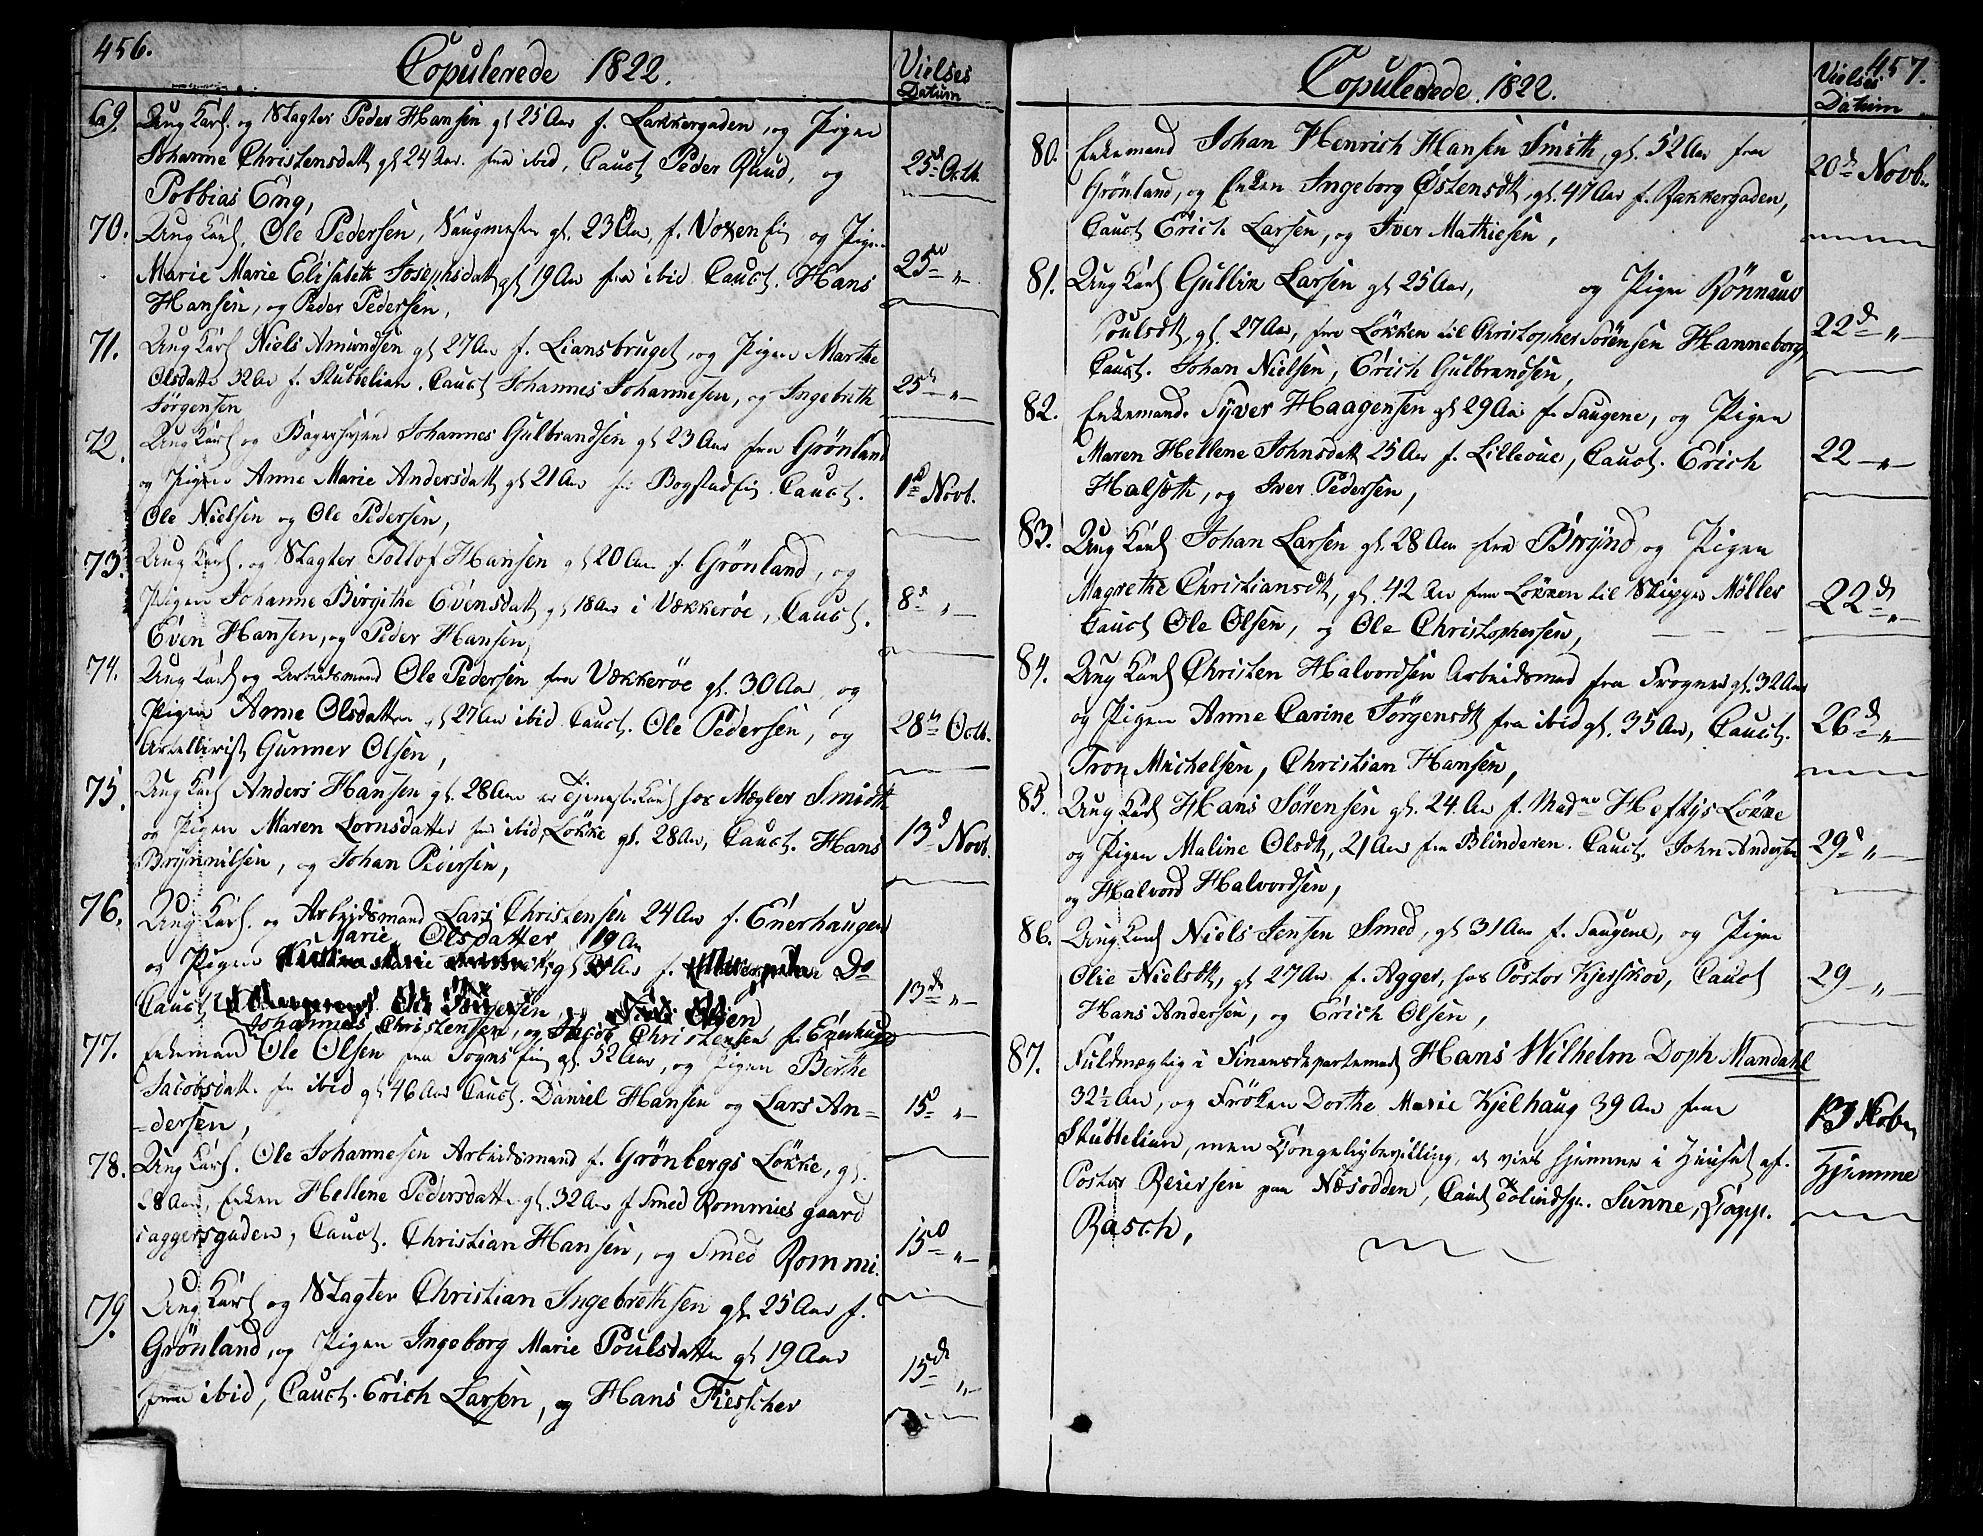 456.
Copulerede 1822.
Vielses
Datum
69. Ung Karl. og Slagter Peder Hansen gl 25 Aar f. Lakkergaden, og Pigen
Johanne Christensdatt gl 24 Aar. fra ibid, Cauct Peder Ruud, og
Tobbias Eng,
25d Octb.
70. Ung Karl. Ole Pedersen, Saugmester gl. 23 Aar, f. Voxen Eie og Pigen
Marie Marie Elisabeth Josephsdatt gl 19 Aar fra ibid Cauct. Hans
Hansen, og Peder Pedersen,
25de "
71. Ung Karl Niels Amundsen gl 27 Aar f. Liansbruget, og Pigen Marthe
Olsdatts 32 Aar f. Stubbelian. Cauct Johannes Johannesen, og Ingebreth
Jørgensen
25de "
72. Ung Karl og Bagersvend Johannes Gulbrandsen gl 23 Aar fra Grönland
og Pigen Anne Marie Andersdatt gl 21 Aar fra Bogstad Eie. Cauct.
Ole Nielsen og Ole Pedersen,
1d Novb.
73. Ung Karl. og Slagter Tollof Hansen gl 20 Aar f. Grönland, og
Pigen Johanne Birgithe Evensdatt gl 18 Aar i Vækkeröe, Cauct.
Even Hansen, og Peder Hansen,
8d "
74. Ung Karl og Arbeidsmand Ole Pedersen fra Vækkeröe gl. 30 Aar, og
Pigen Anne Olsdatter gl 27 Aar ibid Cauct. Ole Pedersen, og
Artellirist Gunner Olsen,
28de Octb.
75. Ung Karl Anders Hansen gl. 28 Aar er Tjenestekarl hos Mægler Smidth
og Pigen Maren Lornsdatter fra ibid Løkke gl. 28 Aar, Cauct. Hans
Brynnilsen, og Johan Pedersen,
13d Novb.
76. Ung Karl. og Arbeidsmand Lars Christensen 24 Aar f. Enerhaugen
Marie Olsdatter 19 Aar
og Pigen gl Aar f. Do
Cauct
Johannes Christensen, og Jacob Christensen f. Enerhauge
13de "
77. Enkemand Ole Olsen fra Sogns Eie gl. 52 Aar, og Pigen Berthe
Jacobsdatt. fra ibid gl 46 Aar Cauct. Daniel Hansen og Lars An=
=dersen,
15d "
78. Ung Karl. Ole Johannesen Arbeidsmand f. Grönbergs Løkke, gl.
28 Aar, Enken Hellene Pedersdatter gl. 32 Aar f Smed Rommies gaard
i aggersgaden, Cauct. Christian Hansen, og Smed Rommi.
15d "
79. Ung Karl og Slagter Christian Ingebrethsen gl. 25 Aar f.
Grönland, og Pigen Ingeborg Marie Poulsdatter gl 19 Aar
fra ibid, Cauct. Erich Larsen, og Hans Fiesscher
15de "
457.
Copulerede 1822.
Vielses
Datum
80. Enkemand Johan Henrich Hansen Smith, gl. 52 Aar fra
Grönland, og Enken Ingeborg Østensdt, gl. 47 Aar f. Rakkergaden,
Cauct Erich Larsen, og Iver Mathiesen,
20de Novbr
81. Ung Karl Gullik Larsen gl 25 Aar, og Pigen Rönnaug
Poulsdt, gl. 27 Aar, fra Løkken til Christopher Sørensen Hanneborg,
Cauct. Johan Nielsen, Erich Gulbrandsen,
22d "
82. Enkemand. Syver Haagensen gl 29 Aar f. Saugene, og Pigen
Maren Hellene Johnsdatt 25 Aar f. Lilleoue, Cauct. Erich
Halseth, og Iver Pedersen,
22 "
83. Ung Karl Johan Larsen gl. 28 Aar fra Brynd og Pigen
Magrethe Christiansdt, gl. 42 Aar fra Løkken til Skipper Møller
Cauct Ole Olsen, og Ole Christophersen,
22de "
84. Ung Karl Christen Halvordsen Arbeidsmd fra Frogner gl. 32 Aar
og Pigen Anne Carine Jørgensdt fra ibid gl. 35 Aar, Cauct.
Tron Michelsen, Christian Hansen,
26de "
85. Ung Karl Hans Sørensen gl. 24 Aar f. Madme Heftys Løkke
og Pigen Maline Olsdt, 21 Aar fra Blinderen. Cauct. John Andersen
og Halvord Halvordsen,
29d "
86. Ung Karl Niels Jensen Smed, gl 31 Aar f. Saugene, og Pigen
Olie Nielsdt, gl. 27 Aar f. Agger, hos Pastor Kjerskov, Cauct
Hans Andersen, og Erich Olsen,
29 "
87. Fuldmægtig i Finansdepartemet Hans Wilhelm Doph Mandahl
32½ Aar, og Frøken Dorthe Marie Kjelhaug 39 Aar fra
Stubbelian, men Kongeligbevilling, at vies hjemme i Huuset af.
Pastor Reiersen paa Næsodden, Cauct Sunne,
Rasch,
Hjemme